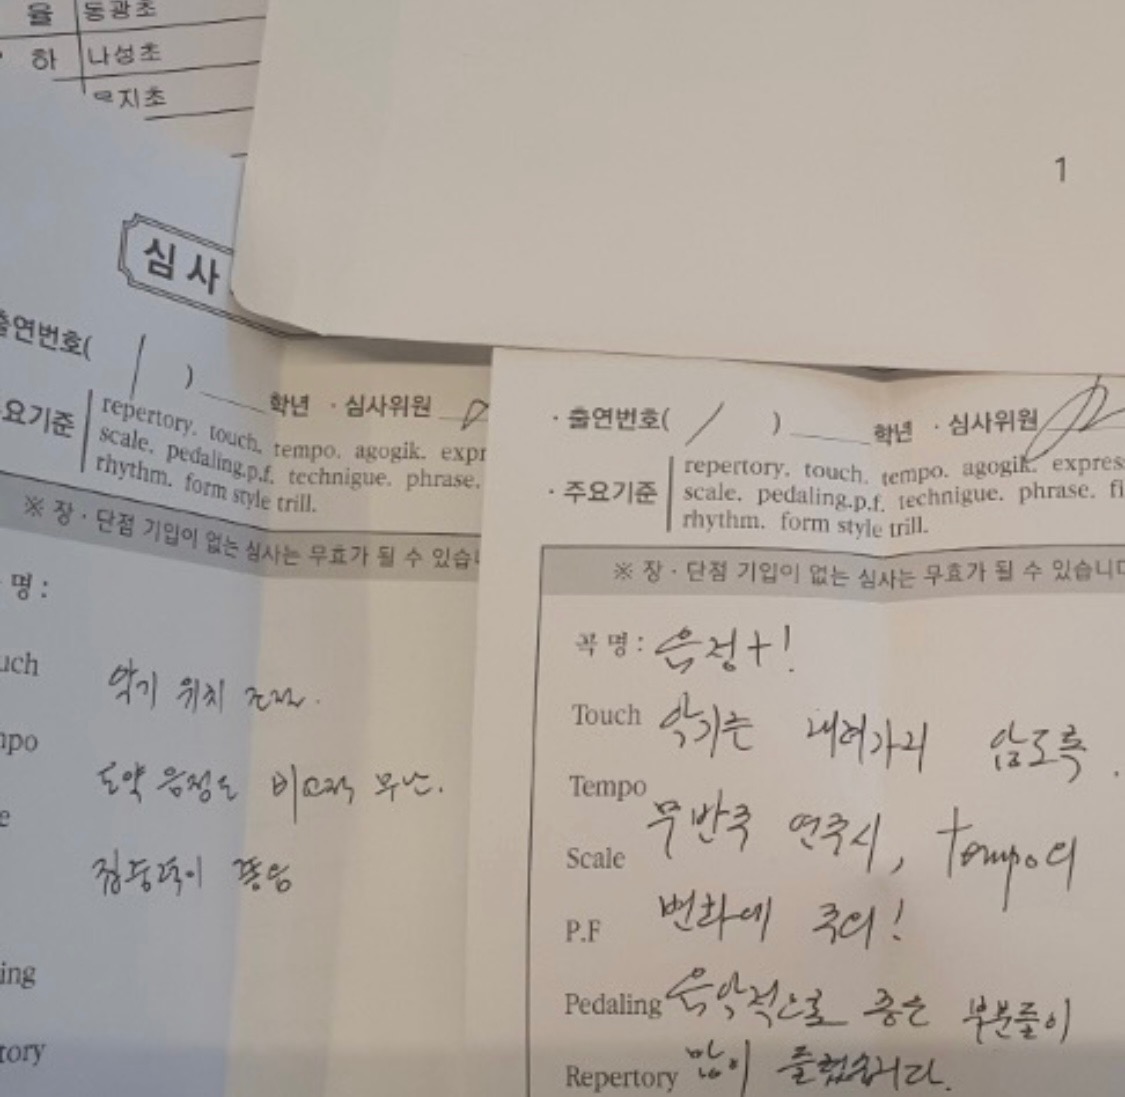 율 동광초
하 나성초
지초
심사
출연번호( / ) 학년 · 심사위원
요기준 repertory. touch. tempo. agogik. expr
scale. pedaling.p.f. technigue. phrase.
rhythm. form style trill.
※ 장 · 단점 기입이 없는 심사는 무효가 될 수 있습니
명 :
uch
악기 위치 조절.
mpo
도약 음정도 비교적 무난.
e
집중력이 좋음
ing
tory
1
· 출연번호( / ) 학년 · 심사위원
· 주요기준 repertory. touch. tempo. agogik. express
scale. pedaling.p.f. technigue. phrase. fi
rhythm. form style trill.
※ 장 · 단점 기입이 없는 심사는 무효가 될 수 있습니다
곡 명 : 음정+!
Touch 악기는 내려가지 않도록.
Tempo
무반주 연주시, tempo의
Scale
변화에 주의!
P.F
Pedaling 음악적으로 좋은 부분들이
Repertory 많이 들렸습니다.